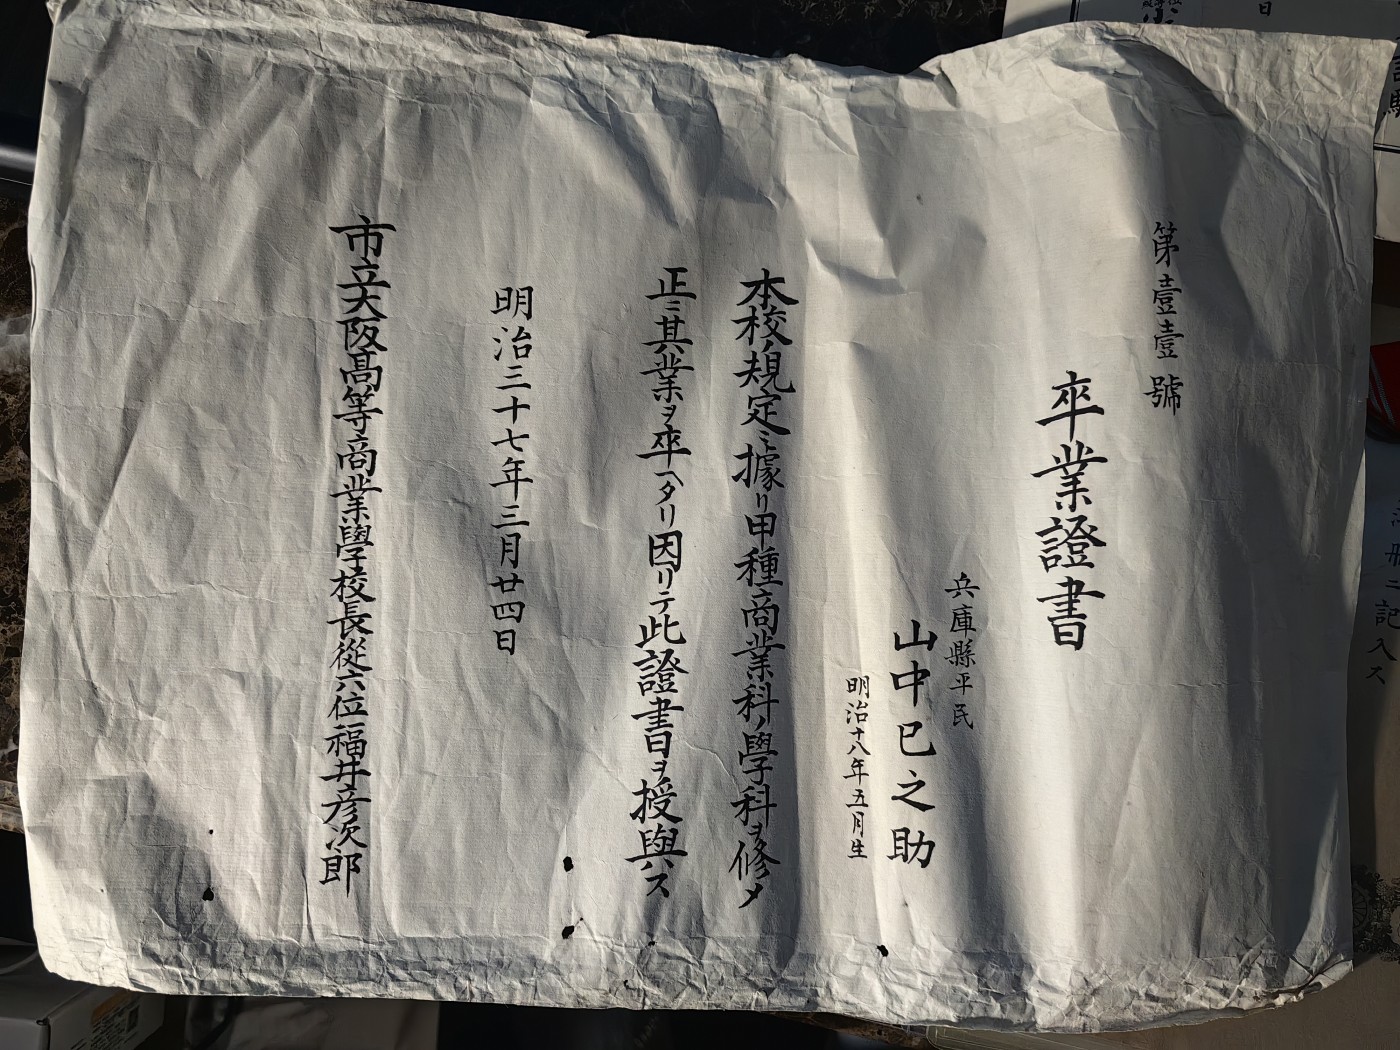 第壹壹號
卒業證書
兵庫縣平民
山中巳之助
明治十八年五月生
本校ノ規定ニ據リ甲種商業科ノ學科ヲ修メ
正ニ其業ヲ卒ヘタリ因リテ此證書ヲ授與ス
明治三十七年三月廿四日
市立大阪高等商業學校長從六位福井彦次郎
日
記入ス